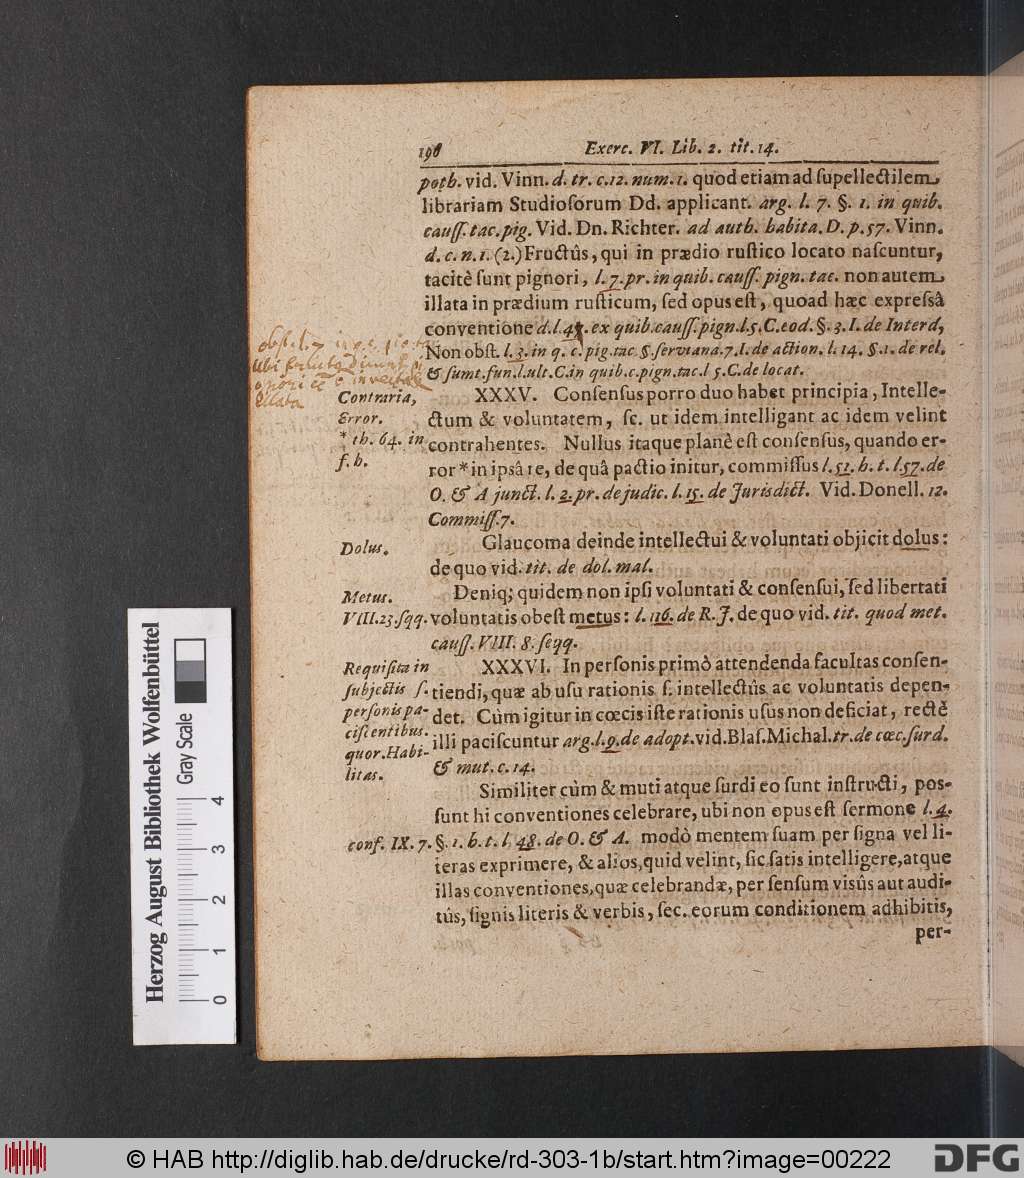 198 Exerc. VI. Lib. 2. tit. 14.
poth. vid. Vinn. d. tr. c. 12. num. 1. quod etiam ad supellectilem
librariam Studiosorum Dd. applicant. arg. l. 7. §. 1. in quib.
causs. tac. pig. Vid. Dn. Richter. ad auth. habita. D. p. 57. Vinn.
d. c. n. 1. (2.) Fructûs, qui in prædio rustico locato nascuntur,
tacitè sunt pignori, l. 7. pr. in quib. causs. pign. tac. non autem
illata in prædium rusticum, sed opus est, quoad hæc expressâ
conventione d. l. 4. ex quib. causs. pign. l. 5. C. eod. §. 3. I. de Interd,
Non obst. l. 3. in q. c. pig. tac. §. serviana. 7. I. de action. l. 14. §. 1. de rel.
& sumt. fun. l. ult. C. in quib. c. pign. tac. l 5. C. de locat.
obst. l. 7
ubi
illata
Contraria,
Error.
* th. 64. in
f. h.
XXXV. Consensus porro duo habet principia, Intelle-
ctum & voluntatem, sc. ut idem intelligant ac idem velint
contrahentes. Nullus itaque planè est consensus, quando er-
ror * in ipsâ re, de quâ pactio initur, commissus l. 51. h. t. l. 57. de
O. & A junct. l. 2. pr. de judic. l. 15. de Jurisdict. Vid. Donell. 12.
Commiss. 7.
Dolus.
Glaucoma deinde intellectui & voluntati objicit dolus:
de quo vid. tit. de dol. mal.
Metus.
VIII. 23. sqq.
Deniq; quidem non ipsi voluntati & consensui, sed libertati
voluntatis obest metus: l. 116. de R. J. de quo vid. tit. quod met.
causs. VIII. 8. seqq.
Requisita in
subjectis s.
personis pa-
ciscentibus.
quor. Habi-
litas.
XXXVI. In personis primò attendenda facultas consen-
tiendi, quæ ab usu rationis s. intellectûs ac voluntatis depen-
det. Cùm igitur in cœcis iste rationis usus non deficiat, rectè
illi paciscuntur arg. l. 9. de adopt. vid. Blas. Michal. tr. de cœc. surd.
& mut. c. 14.
Similiter cùm & muti atque surdi eo sunt instructi, pos-
sunt hi conventiones celebrare, ubi non opus est sermone l. 4.
conf. IX. 7. §. 1. h. t. l. 48. de O. & A. modò mentem suam per signa vel li-
teras exprimere, & alios, quid velint, sic satis intelligere, atque
illas conventiones, quæ celebrandæ, per sensum visûs aut audi-
tûs, signis literis & verbis, sec. eorum conditionem adhibitis,
per-
Herzog August Bibliothek Wolfenbüttel
Gray Scale
0 1 2 3 4
© HAB http://diglib.hab.de/drucke/rd-303-1b/start.htm?image=00222
DFG